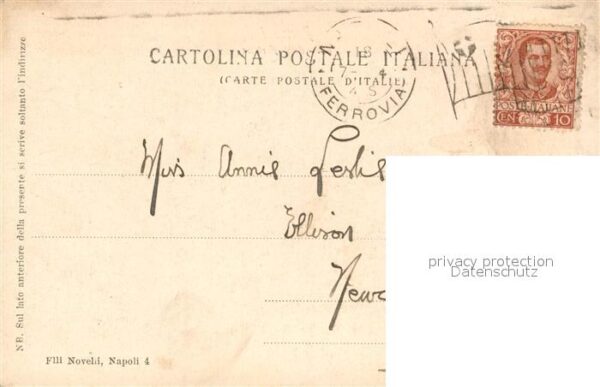 CARTOLINA POSTALE ITALIANA
(CARTE POSTALE D'ITALIE)
FERROVIA
POSTE ITALIANE
CEN 10
Miss Annie Leslie
Ellison
Newc
privacy protection
Datenschutz
NB. Sul lato anteriore della presente si scrive soltanto l'indirizzo
Flli Novelli, Napoli 4